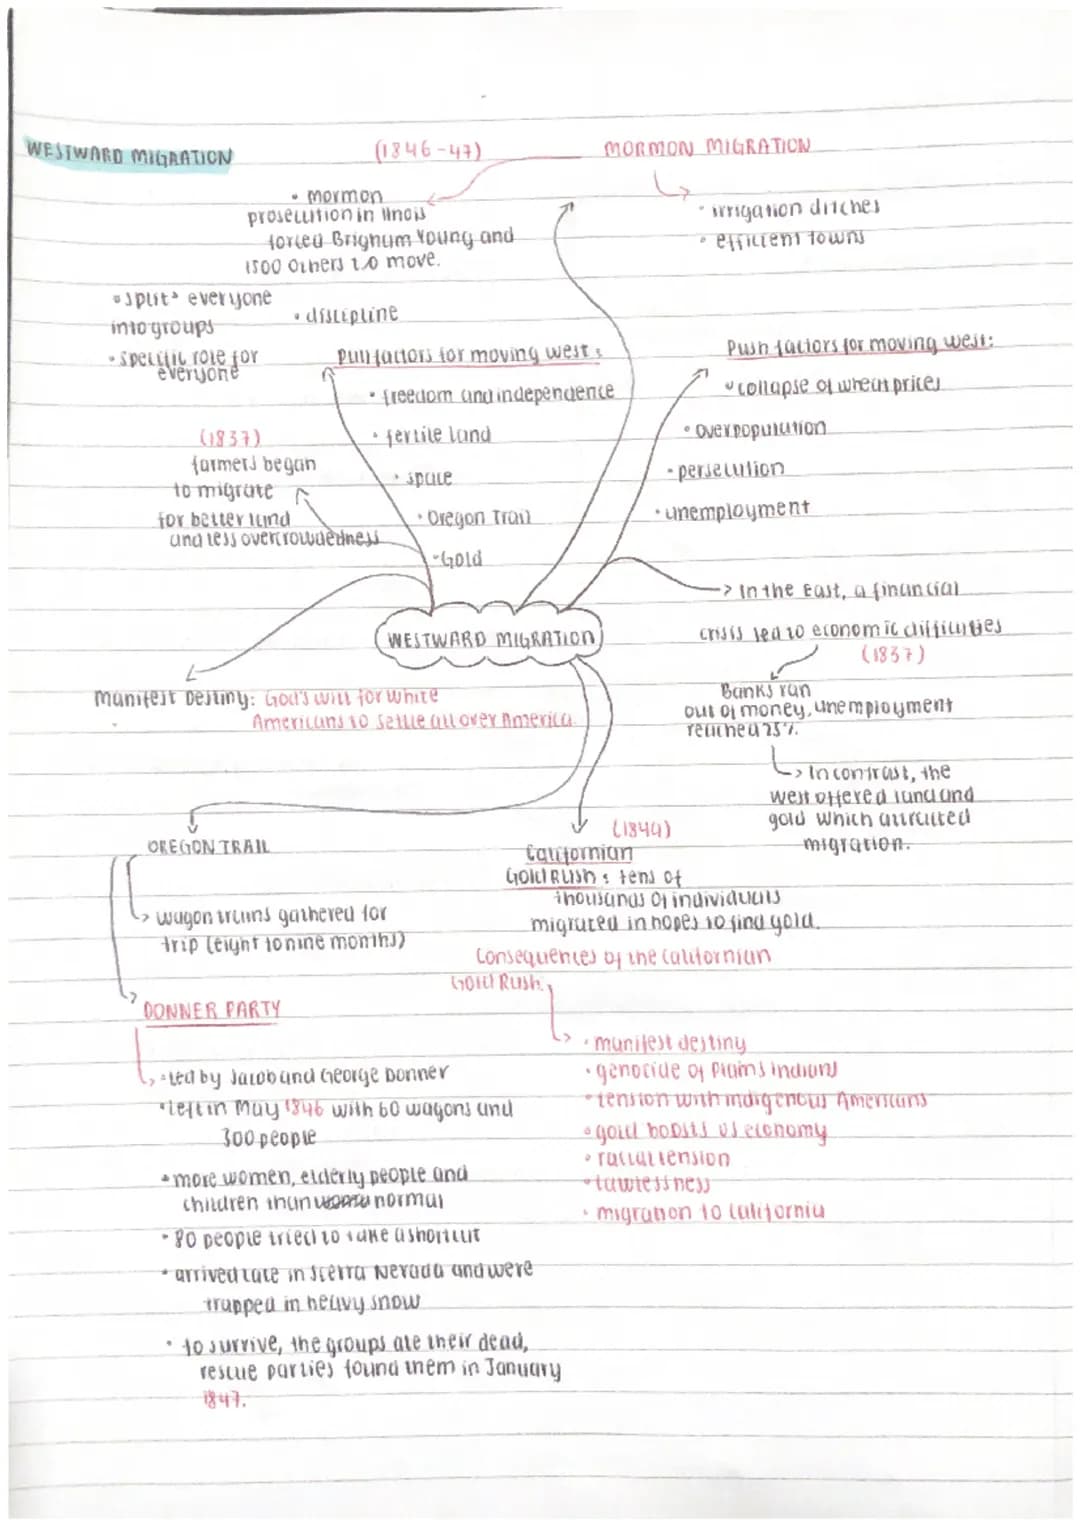 WESTWARD MIGRATION
(1846-47)
MORMON MIGRATION
• mormon
prosecution in Ilinois
forced Brighum Young and
1500 Others to move.
• irrigation ditches
• efficient towns
• split everyone
into groups
• discipline
• specific role for
everyone
Pull factors for moving west:
• freedom and independence
• fertile land
• space
• Oregon Trail
• Gold
Push factors for moving west:
• collapse of wheat prices
• overpopulation
• persecution
• unemployment
(1837)
farmers began
to migrate
for better land
and less overcrowdedness
-> In the East, a financial
crisis led to economic difficulties
(1837)
Banks ran
out of money, unemployment
reached 25%.
-> In contrast, the
west offered land and
gold which attracted
migration.
WESTWARD MIGRATION
Manifest Destiny: God's will for white
Americans to settle all over America.
OREGON TRAIL
-> wagon trains gathered for
trip (eight to nine months)
DONNER PARTY
• led by Jacob and George Donner
• left in May 1846 with 60 wagons and
300 people
• more women, elderly people and
children than normal
• 80 people tried to take a shortcut
• arrived late in Sierra Nevada and were
trapped in heavy snow
• to survive, the groups ate their dead,
rescue parties found them in January
1847.
(1849)
Californian
Gold Rush: tens of
thousands of individuals
migrated in hopes to find gold.
Consequences of the Californian
Gold Rush
• manifest destiny
• genocide of Plains Indians
• tension with indigenous Americans
• gold boosts US economy
• racial tension
• lawlessness
• migration to California